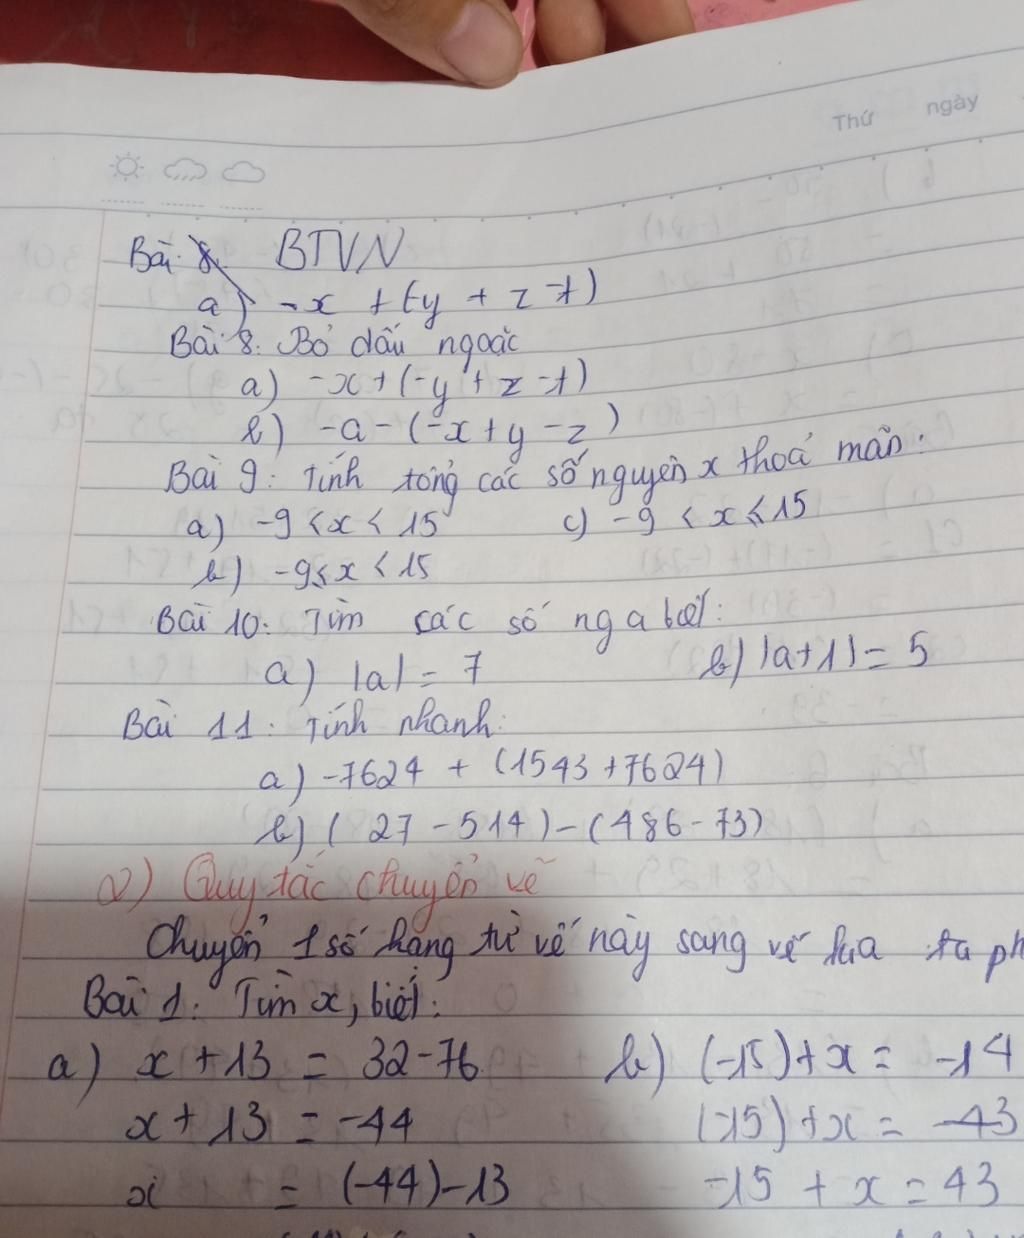 Thứ ngày
Bài 8. BTVN
a) -x + (-y + z - t)
Bài 8. Bỏ dấu ngoặc
a) -x + (-y + z - t)
b) -a - (-x + y - z)
Bài 9: Tính tổng các số nguyên x thoả mãn:
a) -9 < x < 15 c) -9 < x ≤ 15
b) -9 ≤ x < 15
Bài 10: Tìm các số ng a biết:
a) |a| = 7 b) |a+1| = 5
Bài 11: Tính nhanh:
a) -7624 + (1543 + 7624)
b) (27 - 514) - (486 - 73)
2) Quy tắc chuyển vế
Chuyển 1 số hạng từ vế này sang vế kia ta ph
Bài 1: Tìm x, biết:
a) x + 13 = 32 - 76 b) (-15) + x = -14
x + 13 = -44 (-15) + x = -43
x = (-44) - 13 -15 + x = 43